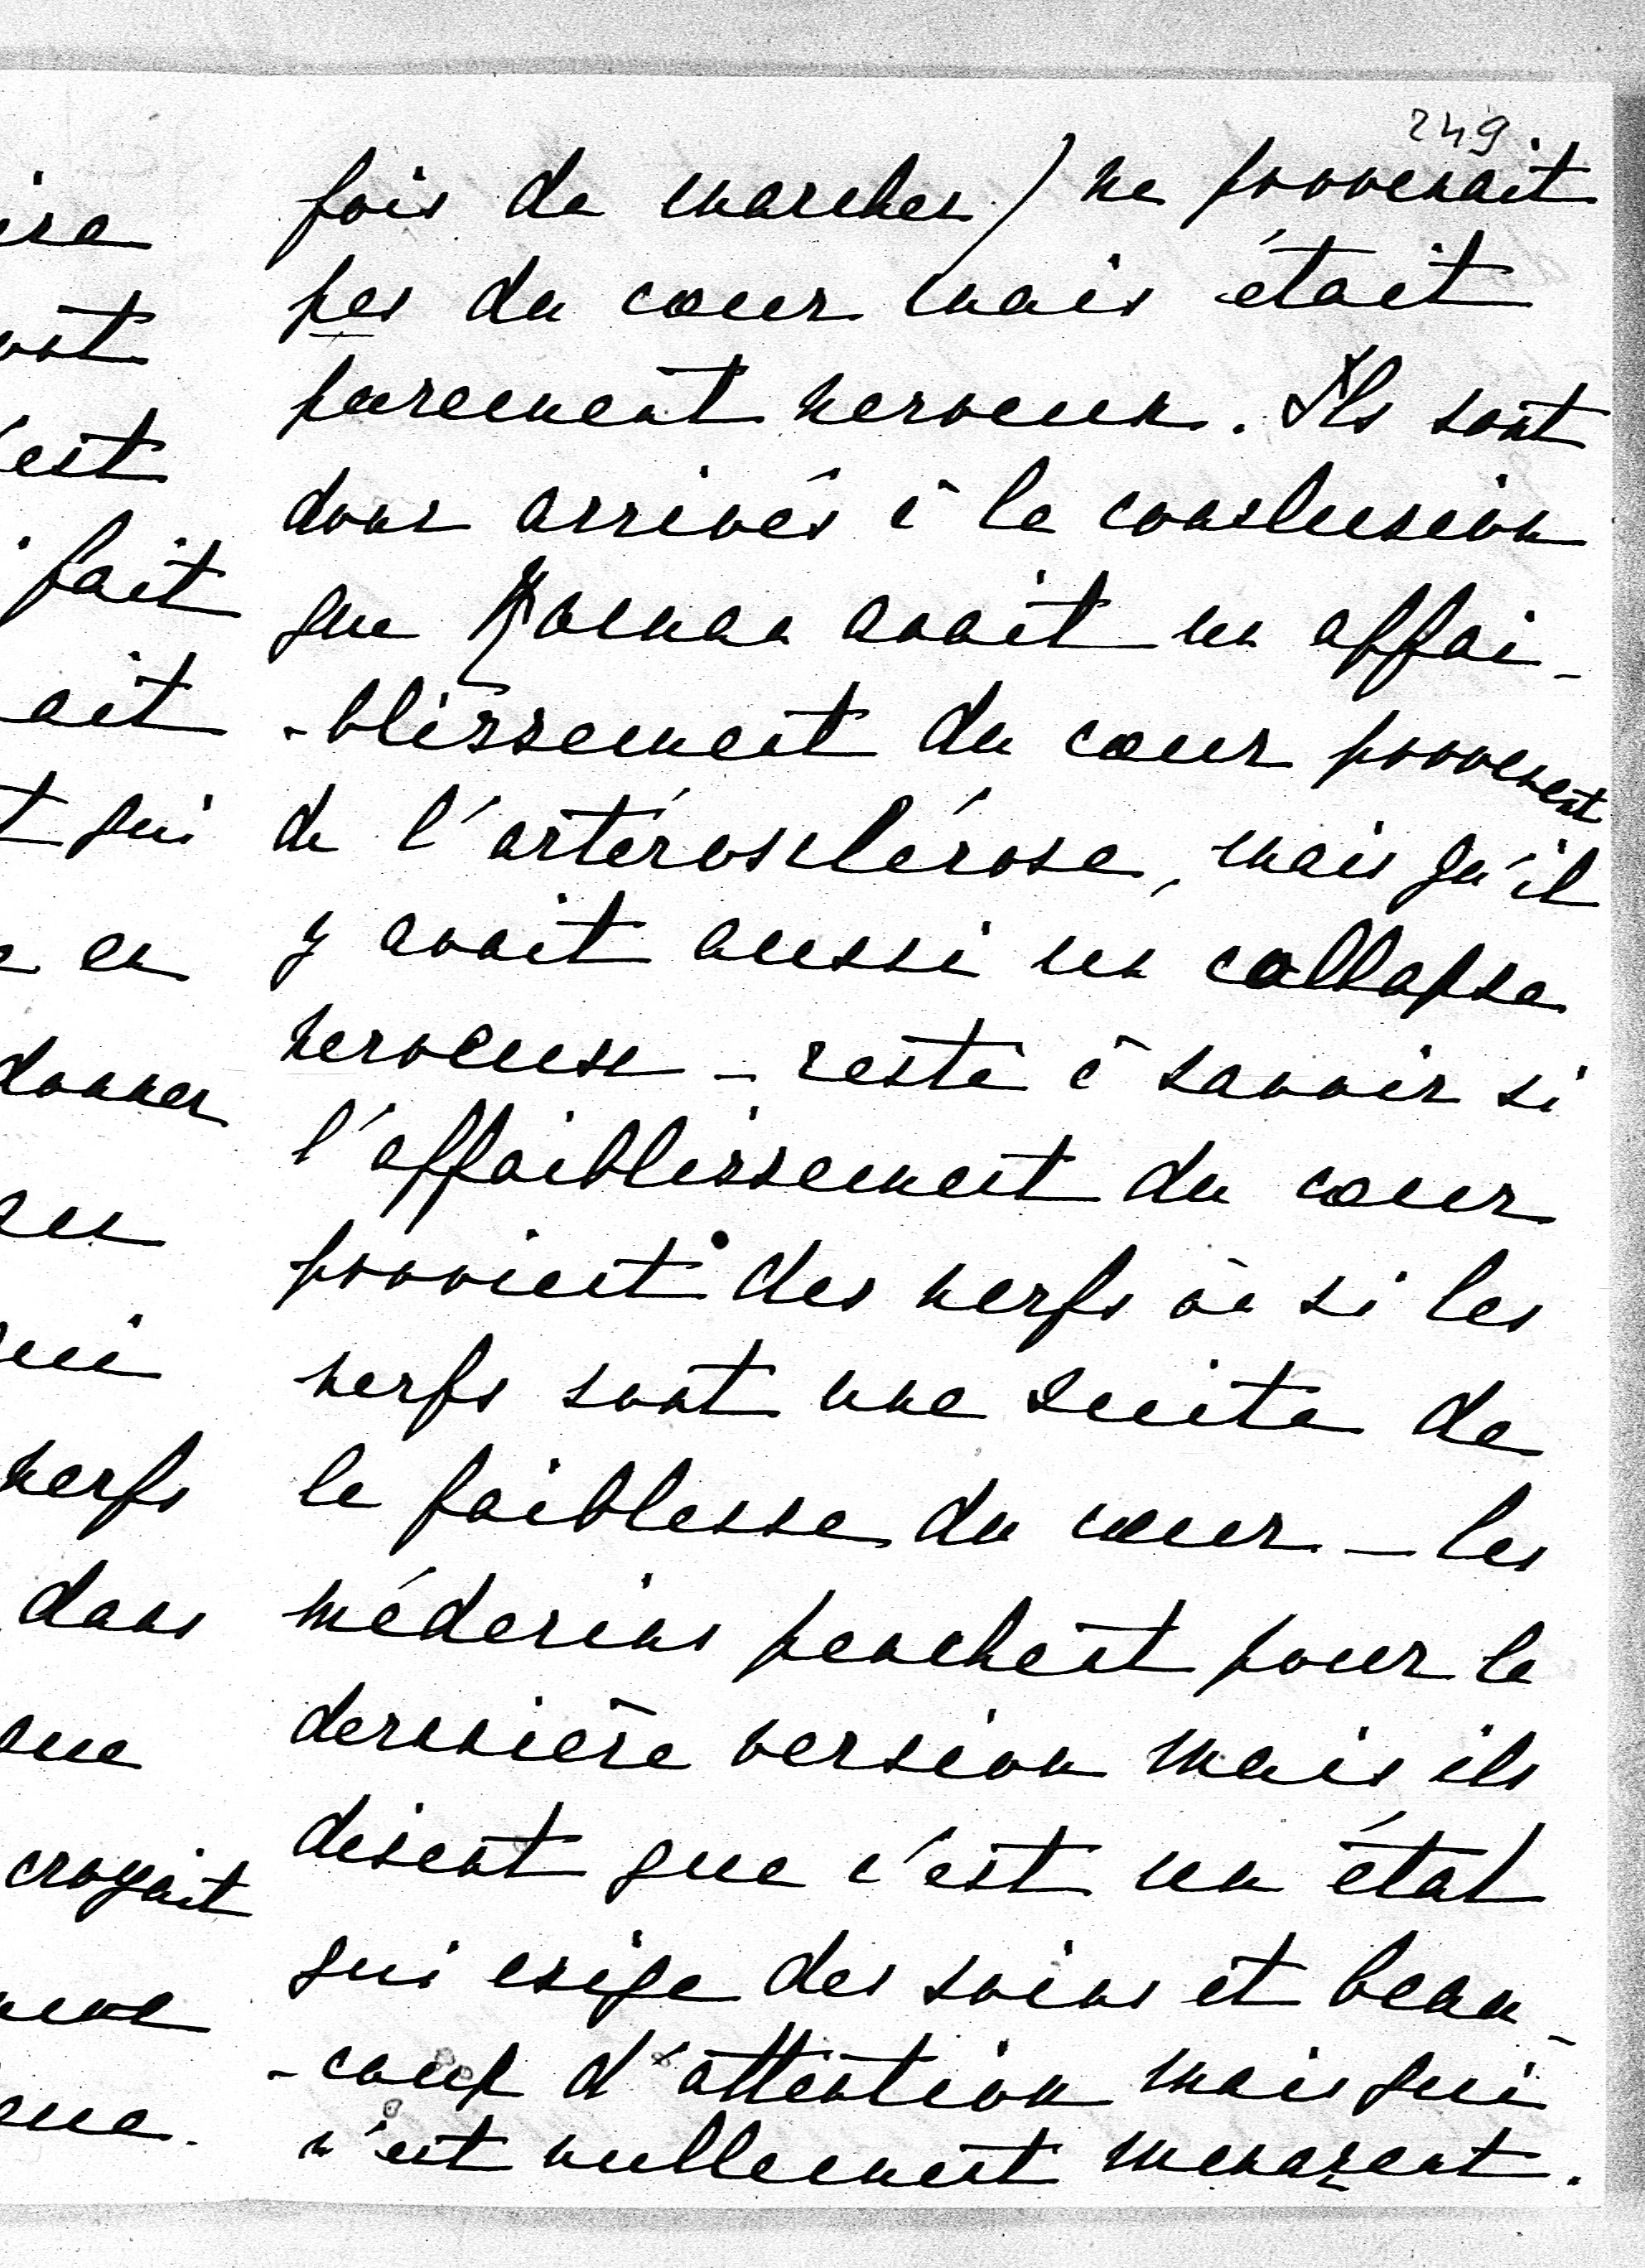 249.
fois de marcher) ne provenait
pas du cœur mais était
purement nerveux. Ils sont
donc arrivés à la conclusion
que Maman avait un affai-
-blissement du cœur provenant
de l'artérosclérose, mais qu'il
y avait aussi un collapse
nerveuse – reste à savoir si
l'affaiblissement du cœur
provient des nerfs où si les
nerfs sont une suite de
la faiblesse du cœur – les
médecins penchent pour la
dernière version mais ils
disent que c'est un état
qui exige des soins et beau-
-coup d'attention mais qui
n'est nullement menaçant.
est
fait
ait
t qui
en
donner
nerfs
dans
croyait